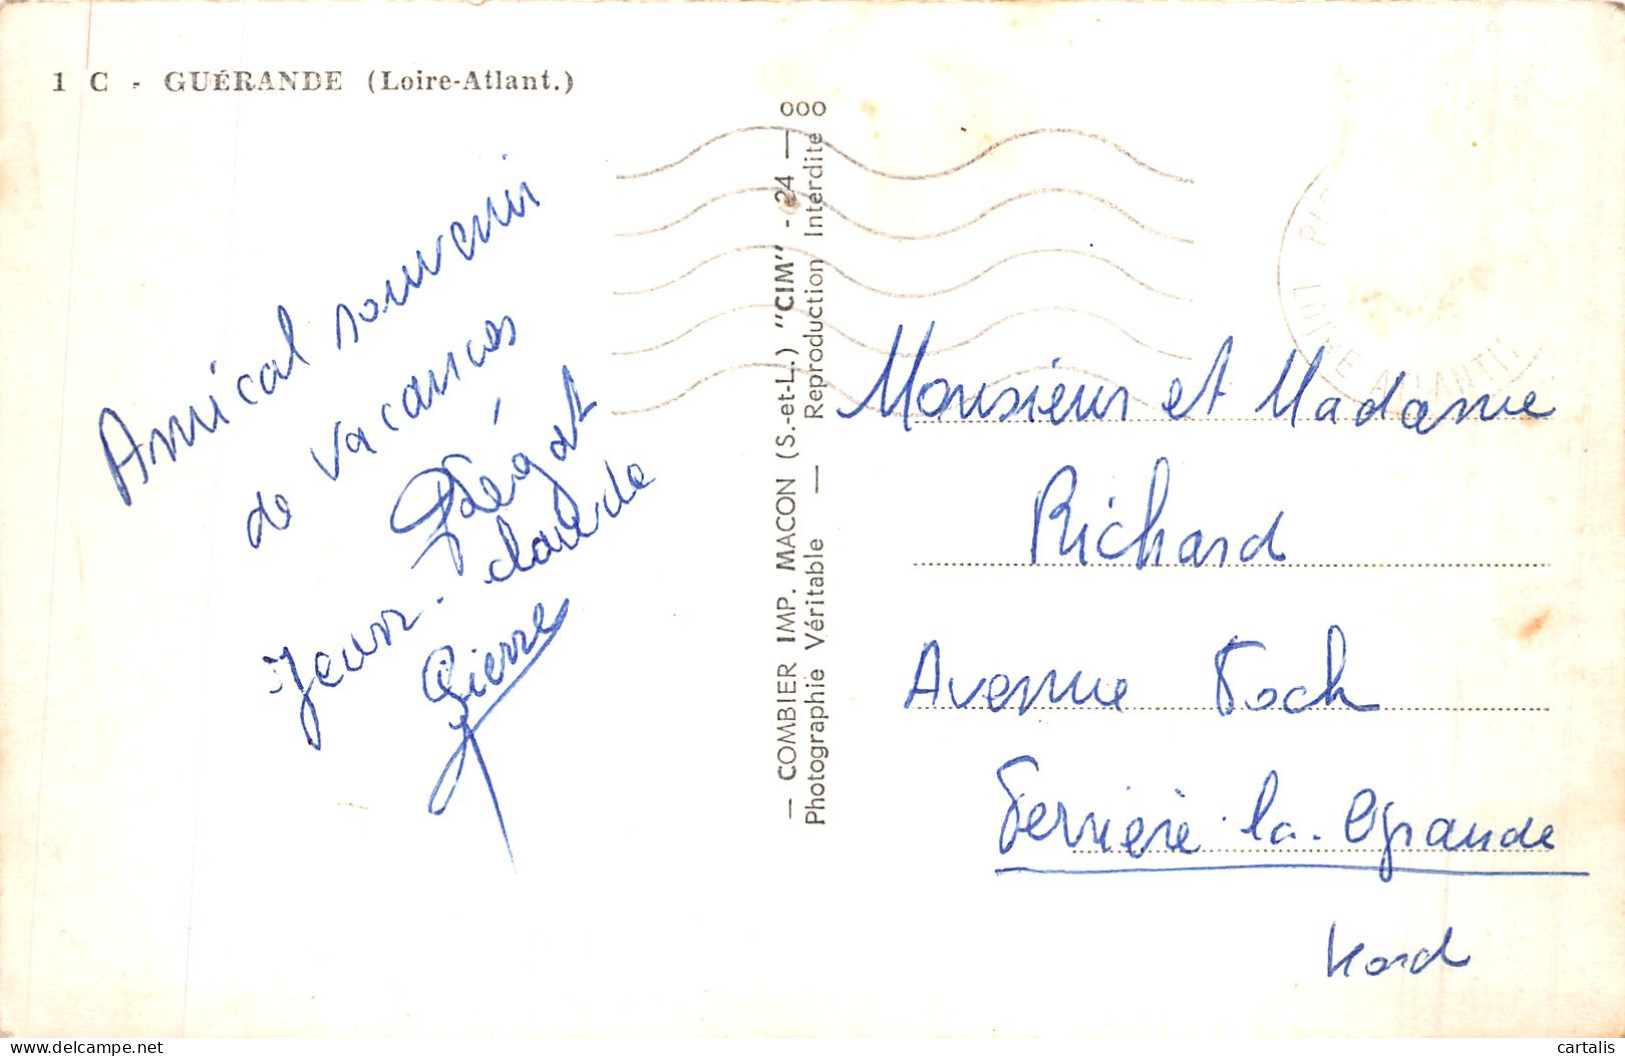 1 C - GUÉRANDE (Loire-Atlant.)
Amical souvenir
de vacances
Jean-Claude
Pierre
— COMBIER IMP. MACON (S.-et-L.) "CIM" - 24 — 000
Photographie Véritable — Reproduction Interdite
LOIRE ATLANTI
Monsieur et Madame
Richard
Avenue Foch
Ferrière-la-Grande
Nord
cartalis
delcampe.net